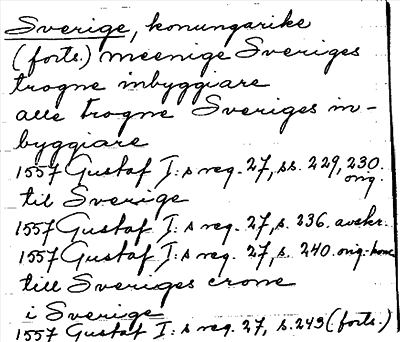 Sverige, konungarike
(forts.) meenige Sveriges
trogne inbyggiare
alle trogne Sveriges in-
byggiare
1557 Gustaf I:s reg. 27, ss. 229, 230.
orig.
till Sverige
1557 Gustaf I:s reg. 27, s. 236. avskr.
1557 Gustaf I:s reg. 27, s. 240. orig. konc
till Sveriges crone
i Sverige
1557 Gustaf I:s reg. 27, s. 243 (forts.)